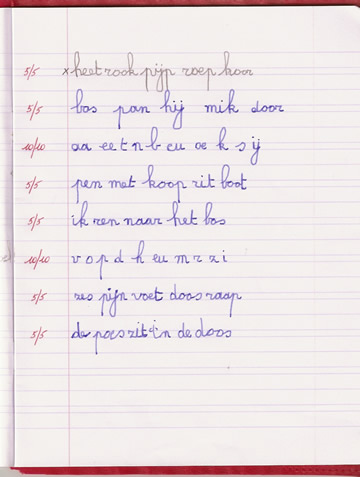 5/5 x heet rook pijp roep hoor
5/5 bos pan hij mik door
10/10 aa ee t n b eu oe k s ij
5/5 pen met koop rit boot
5/5 ik ren naar het bos
10/10 v o p d h eu m r z i
5/5 zes pijn voet doos raap
5/5 de poes zit in de doos